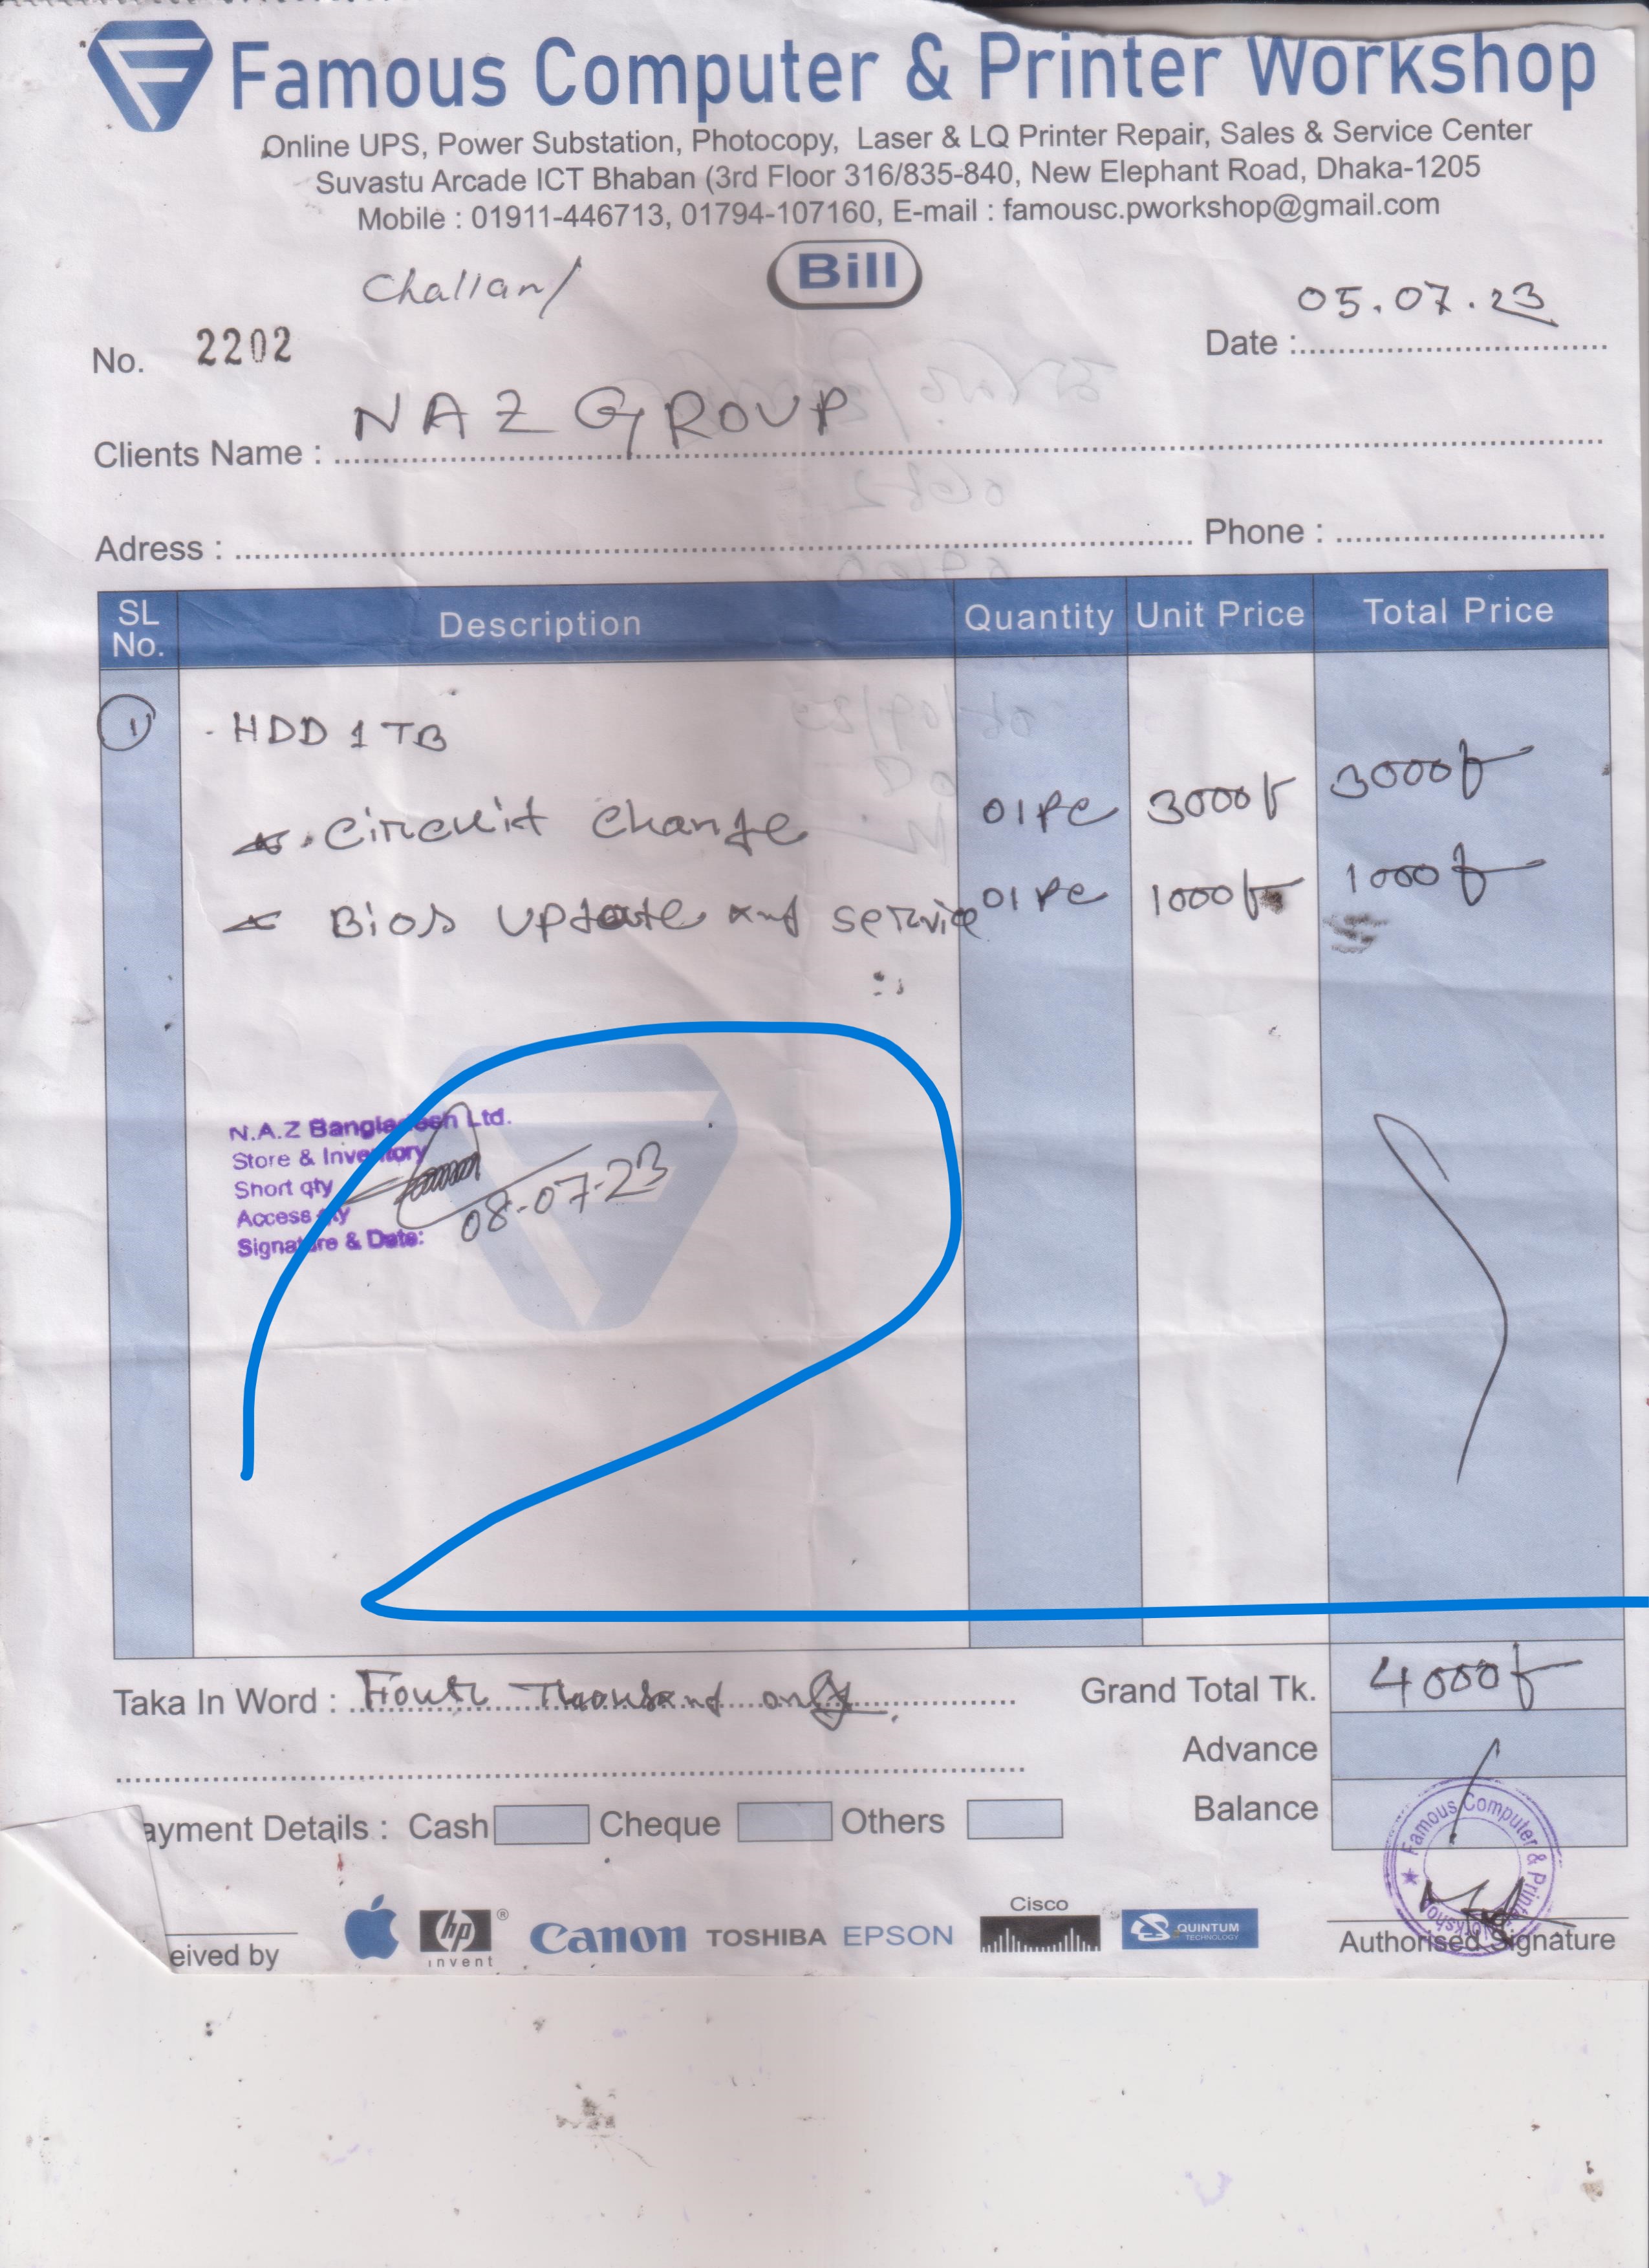 Famous Computer & Printer Workshop
Online UPS, Power Substation, Photocopy, Laser & LQ Printer Repair, Sales & Service Center
Suvastu Arcade ICT Bhaban (3rd Floor 316/835-840, New Elephant Road, Dhaka-1205
Mobile : 01911-446713, 01794-107160, E-mail : famousc.pworkshop@gmail.com
Challan/ Bill
05.07.23
No. 2202 Date :
Clients Name : NAZ GROUP
Adress : Phone :
SL No. Description Quantity Unit Price Total Price
1 HDD 1 TB
Circuit Change 01 Pc 3000/- 3000/-
Bios Update and service 01 Pc 1000/- 1000/-
N.A.Z Bangladesh Ltd.
Store & Inventory
Short qty
Access qty
Signature & Date: 08-07-23
Taka In Word : Four Thousand only. Grand Total Tk. 4000/-
Advance
Balance
ayment Details : Cash Cheque Others
Famous Computer & Printer Workshop
hp invent Canon TOSHIBA EPSON Cisco QUINTUM TECHNOLOGY
eived by Authorised Signature